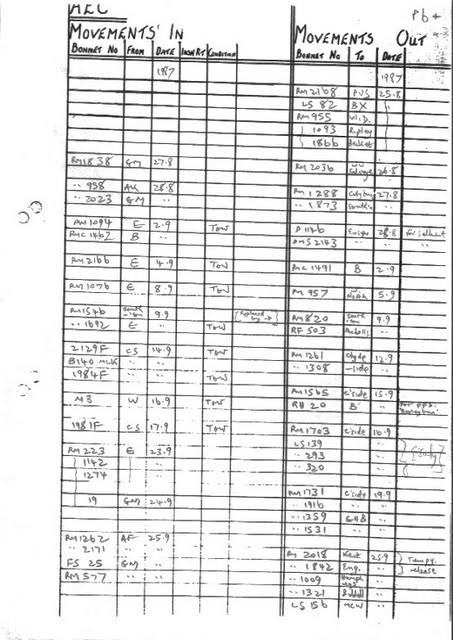 AEC
P6+
MOVEMENTS IN
MOVEMENTS OUT
BONNET NO FROM DATE INSN RT CONDITION
BONNET NO TO DATE
1987
1987
RM 2168 PVS 25.8
LS 82 BX
RM 955 W.D.
1093 Ripley
1866
RM 1838 GM 27.8
RM 2036 26.8
·· 958 AK 28.8
·· 2023 GM ··
RM 1288 27.8
·· 1873
1094 E 2.9 TOW
RMC 1462 B ··
D 1146 Ensign 28.8
DMS 2143 ·· ··
RM 2166 E 4.9 TOW
RMC 1491 B 2.9
RM 1076 E 8.9 TOW
M 957 5.9
RM 1546 9.9
·· 1692 E ·· TOW
RM 820 9.9
RF 503 ··
2129F CS 14.9 TOW
B140 MLK ·· ··
1984F TOW
RM 1261 Clyde 12.9
·· 1308 -side ··
M3 W 16.9 TOW
RM 1565 C'side 15.9
RH 20 B ··
1981F CS 17.9 TOW
RM 1703 C'side 16.9
LS 139
·· 293
·· 320
RM 223 E 23.9
1142
1274
19 GM 24.9
RM 1731 C'side 19.9
·· 1916 ·· ··
·· 1359 GHB ··
·· 1531 ·· ··
RM 1262 AF 25.9
·· 2171 ·· ··
FS 25 GM ··
RM 577 ·· ··
RM 2018 Kent 25.9 Tempy.
·· 1842 Eng. ·· release
·· 1009 ··
·· 1321 ··
LS 156 MCW ··